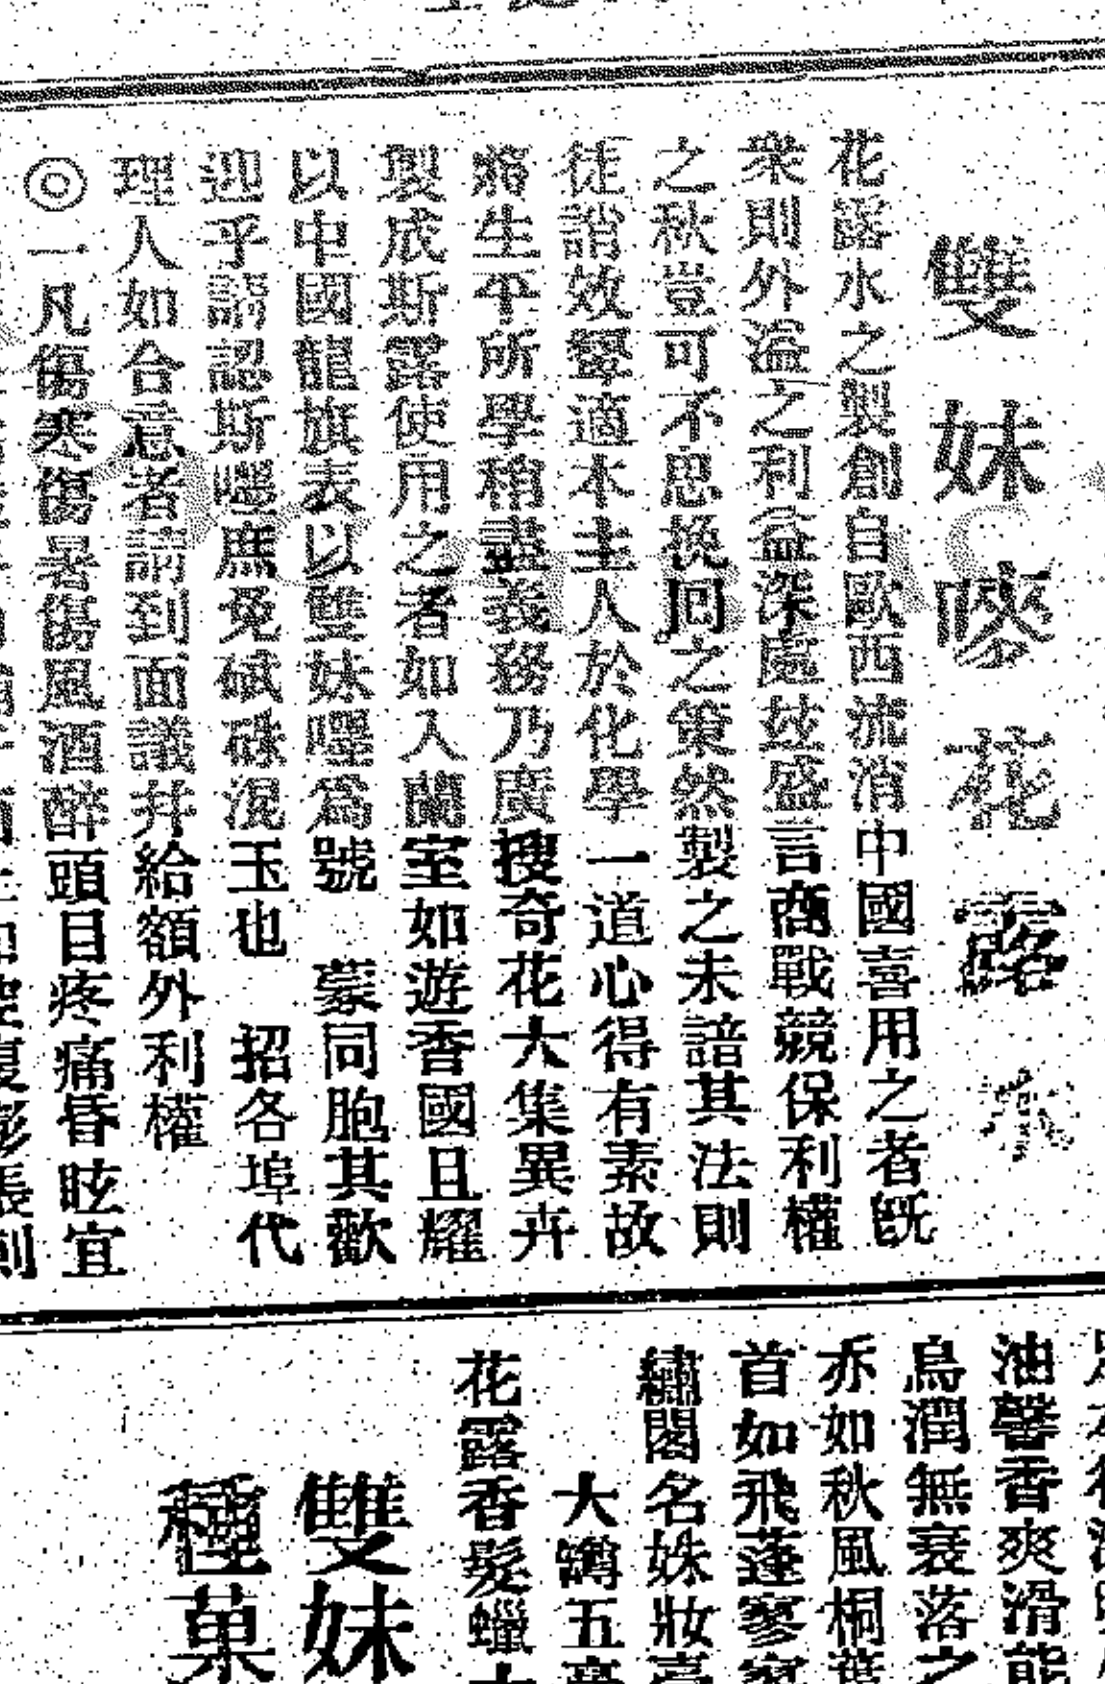 雙妹嘜花露水
花露水之製創自歐西流消中國喜用之者旣
衆則外溢之利益深處玆盛言商戰競保利權
之秋豈可不思挽回之策然製之未諳其法則
徒誚效顰適本主人於化學一道心得有素故
將生平所學稍盡義務乃廣搜奇花大集異卉
製成斯露使用之者如入蘭室如遊香國且耀
以中國龍旗表以雙妹嘜爲號 蒙同胞其歡
迎乎請認斯嘜庶免碔砆混玉也 招各埠代
理人如合意者請到面議并給額外利權
◎一凡傷寒傷暑傷風酒醉頭目疼痛昏眩宜
油馨香爽滑能
烏潤無衰落之
亦如秋風桐葉
首如飛蓬寥寥
繡閣名姝妝臺
大鐏五毫
花露香髮蠟
雙妹
種菓